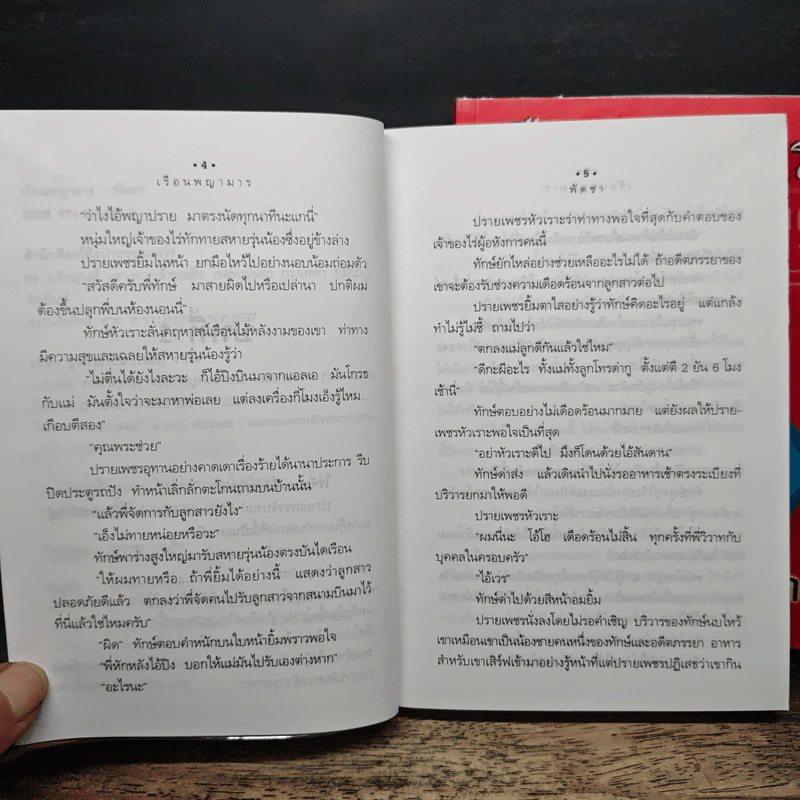 • 4 •
เรือนพญามาร
"ว่าไงไอ้พญาปราย มาตรงนัดทุกนาทีนะแกนี่"
หนุ่มใหญ่เจ้าของไร่ทักทายสหายรุ่นน้องซึ่งอยู่ข้างล่าง
ปรายเพชรยิ้มในหน้า ยกมือไหว้ไปอย่างนอบน้อมถ่อมตัว
"สวัสดีครับพี่ทักษ์ มาสายผิดไปหรือเปล่านา ปกติผม
ต้องขึ้นปลุกพี่บนห้องนอนนี่"
ทักษ์หัวเราะลั่นคฤหาสน์เรือนไม้หลังงามของเขา ท่าทาง
มีความสุขและเฉลยให้สหายรุ่นน้องรู้ว่า
"ไม่ตื่นได้ยังไงละวะ ก็ไอ้ปิงบินมาจากแอลเอ มันโกรธ
กับแม่ มันตั้งใจว่าจะมาหาพ่อเลย แต่ลงเครื่องกี่โมงเอ็งรู้ไหม...
เกือบตีสอง"
"คุณพระช่วย"
ปรายเพชรอุทานอย่างคาดเดาเรื่องร้ายได้นานาประการ รีบ
ปิดประตูรถปัง ทำหน้าเลิ่กลั่กตะโกนถามบนบ้านนั้น
"แล้วพี่จัดการกับลูกสาวยังไง"
"เอ็งไม่ทายหน่อยหรือวะ"
ทักษ์พาร่างสูงใหญ่มารับสหายรุ่นน้องตรงบันไดเรือน
"ให้ผมทายหรือ...ถ้าพี่ยิ้มได้อย่างนี้ แสดงว่าลูกสาว
ปลอดภัยดีแล้ว ตกลงว่าพี่จัดคนไปรับลูกสาวจากสนามบินมาไว้
ที่นี่แล้วใช่ไหมครับ"
"ผิด" ทักษ์ตอบคำหนักบนใบหน้ายิ้มพราวพอใจ
"พี่หักหลังไอ้ปิง บอกให้แม่มันไปรับเองต่างหาก"
"อะไรนะ"
• 5 •
พัดชา
ปรายเพชรหัวเราะร่าท่าทางพอใจที่สุดกับคำตอบของ
เจ้าของไร่ผู้อหังการคนนี้
ทักษ์ยักไหล่อย่างช่วยเหลืออะไรไม่ได้ ถ้าอดีตภรรยาของ
เขาจะต้องรับช่วงความเดือดร้อนจากลูกสาวต่อไป
ปรายเพชรยิ้มตาใสอย่างรู้ว่าทักษ์คิดอะไรอยู่ แต่แกล้ง
ทำไม่รู้ไม่ชี้ ถามไปว่า
"ตกลงแม่ลูกดีกันแล้วใช่ไหม"
"ดีกะผีอะไร ทั้งแม่ทั้งลูกโทรด่ากู ตั้งแต่ตี 2 ยัน 6 โมง
เช้านี่"
ทักษ์ตอบอย่างไม่เดือดร้อนมากมาย แต่ยังผลให้ปราย-
เพชรหัวเราะพอใจเป็นที่สุด
"อย่าหัวเราะดีไป มึงก็โดนด้วยไอ้สันดาน"
ทักษ์ด่าส่ง แล้วเดินนำไปนั่งรออาหารเช้าตรงระเบียงที่
บริวารยกมาให้พอดี
ปรายเพชรหัวเราะ
"ผมนี่นะ โอ้โฮ เดือดร้อนไม่สิ้น ทุกครั้งที่พี่วิวาทกับ
บุคคลในครอบครัว"
"ไอ้เวร"
ทักษ์ด่าไปด้วยสีหน้าอมยิ้ม
ปรายเพชรนั่งลงโดยไม่รอคำเชิญ บริวารของทักษ์นบไหว้
เขาเหมือนเขาเป็นน้องชายคนหนึ่งของทักษ์และอดีตภรรยา อาหาร
สำหรับเขาเสิร์ฟเข้ามาอย่างรู้หน้าที่แต่ปรายเพชรปฏิเสธว่าเขากิน